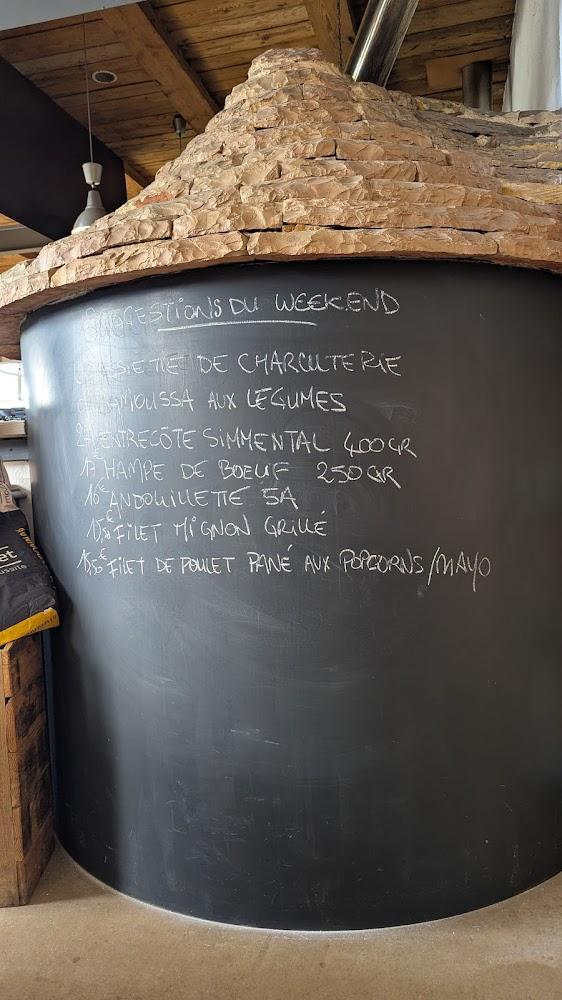 SUGGESTIONS DU WEEKEND
ASSIETTE DE CHARCUTERIE
SAMOUSSA AUX LÉGUMES
ENTRECÔTE SIMMENTAL 400GR
17€ HAMPE DE BOEUF 250GR
16€ ANDOUILLETTE 5A
FILET MIGNON GRILLÉ
FILET DE POULET PANÉ AUX POPCORNS/MAYO